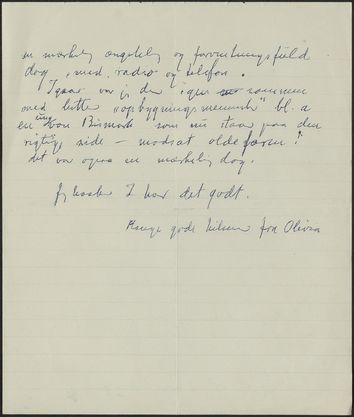 en mærkelig ængstelig og forventningsfuld
dag, med radio og telefon.
Igaar var jeg der igen sammen
med lutter "opbygnings mennesker" bl. a
en ung von Bismark som nu staar paa den
rigtige side – modsat oldefaren!
det var ogsaa en mærkelig dag.
Jeg haaber I har det godt.
Mange gode hilsner fra Olivia